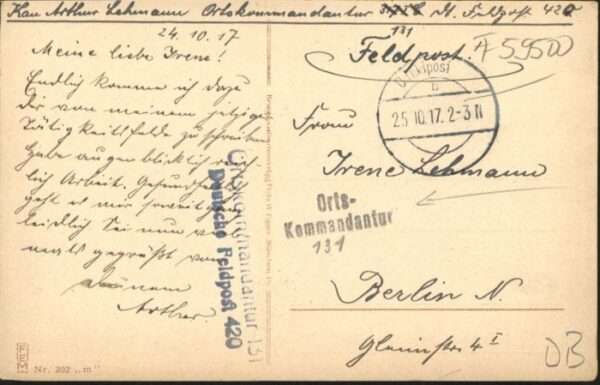 Kan Arthur Lehmann Ortskommandantur D. Feldpost 420
131
24.10.17
Meine liebe Irene!
Endlich komme ich dazu
Dir von meinem jetzigen
Tätigkeitsfelde zu schreiben
Habe augenblicklich reich-
lich Arbeit. Gesundheitlich
geht es mir soweit ganz
leidlich Sei nun viel-
mals gegrüßt von
Deinem
Arthur.
Ortskommandantur 131
Deutsche Feldpost 420
Nr. 202 „m"
Feldpost.
A 59500
Feldpost
b
25.10.17.2-3 N
Frau
Irene Lehmann
Orts-
Kommandantur
131
Berlin N.
Gleimstr. 4 I
DB